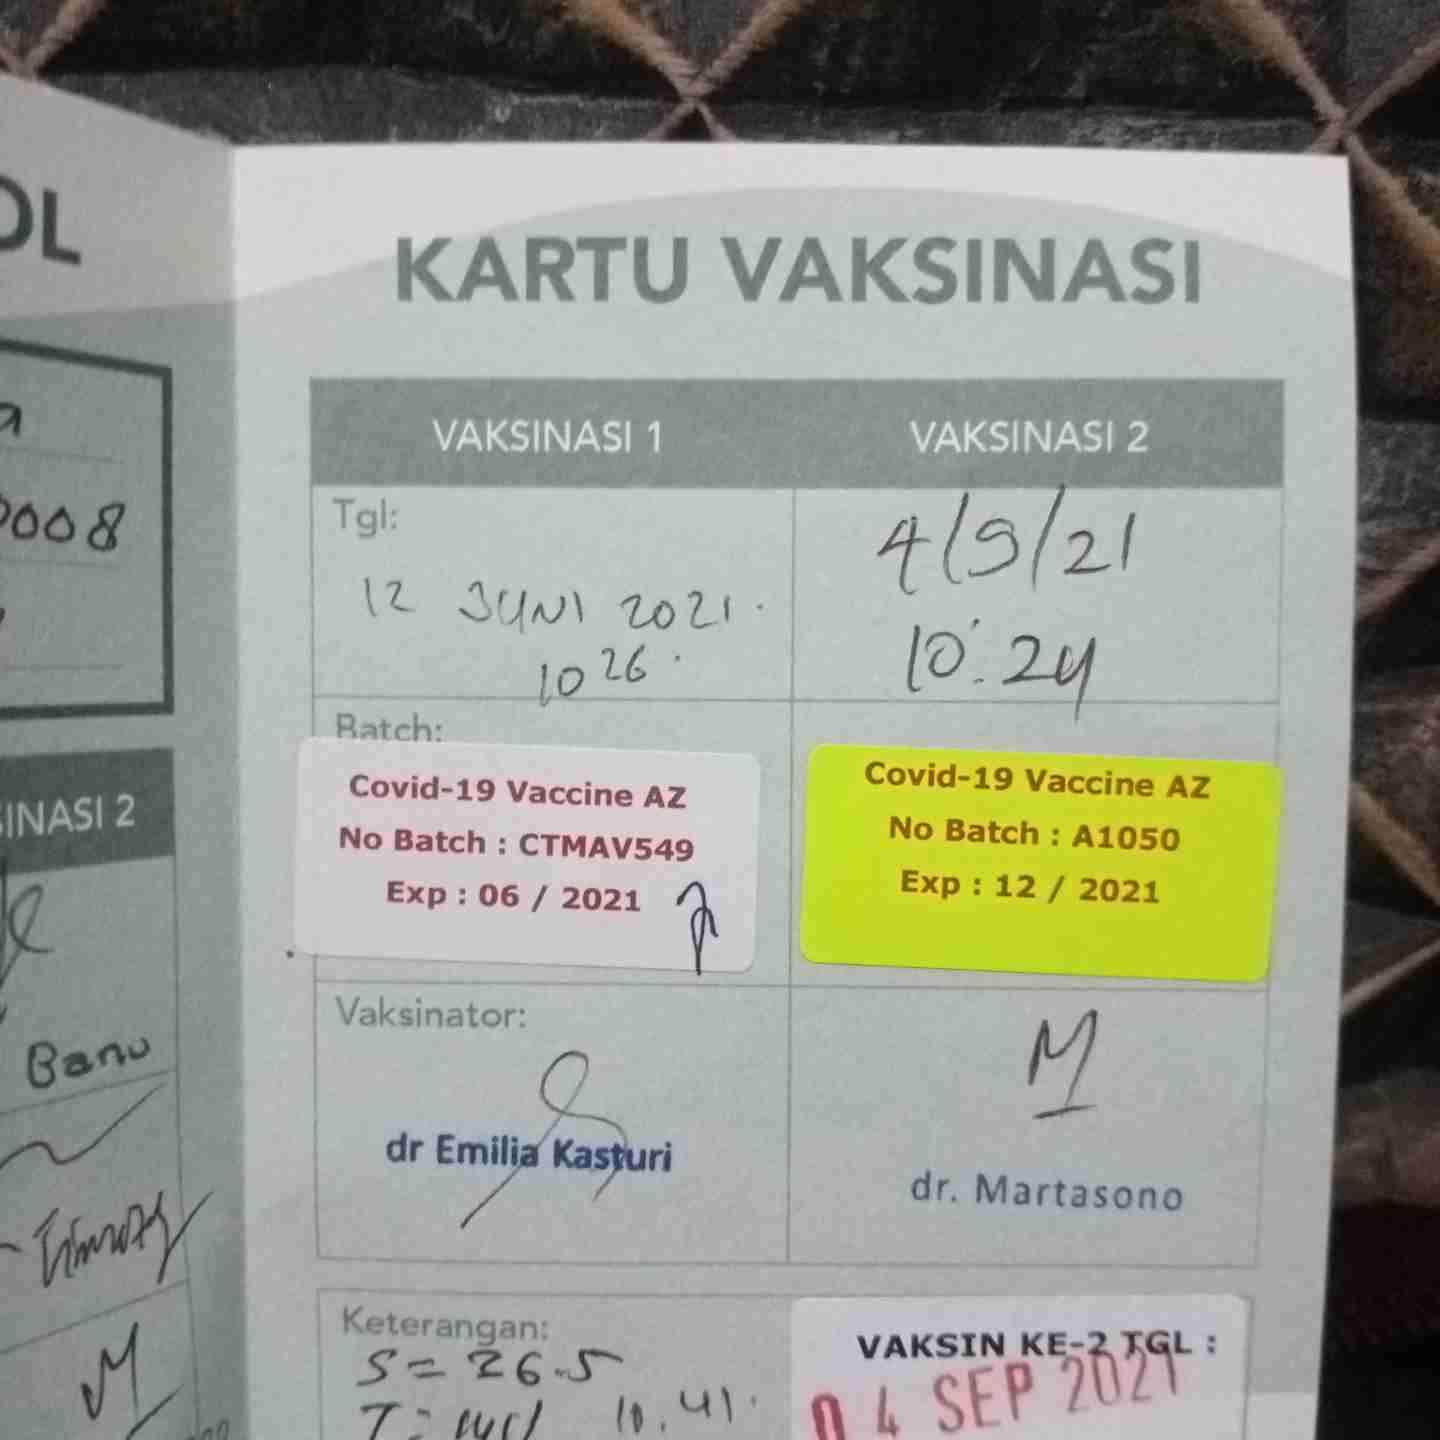 OL
0008
SINASI 2
Banu
KARTU VAKSINASI
VAKSINASI 1
VAKSINASI 2
Tgl:
12 JUNI 2021.
10 26.
4/9/21
10:24
Batch:
Covid-19 Vaccine AZ
No Batch : CTMAV549
Exp : 06 / 2021
Covid-19 Vaccine AZ
No Batch : A1050
Exp : 12 / 2021
Vaksinator:
dr Emilia Kasturi
M
dr. Martasono
Keterangan:
S = 26.5
10.41.
VAKSIN KE-2 TGL :
04 SEP 2021